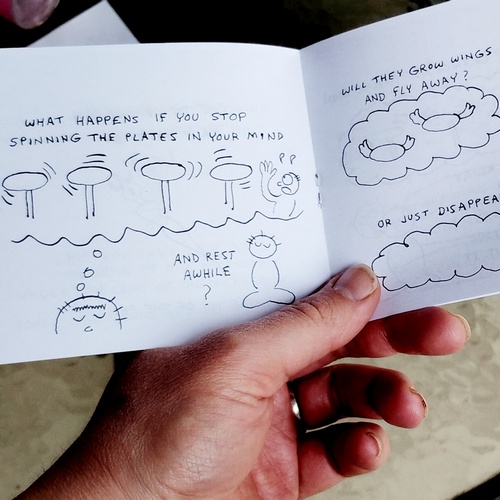 WHAT HAPPENS IF YOU STOP
SPINNING THE PLATES IN YOUR MIND
AND REST
AWHILE
?
WILL THEY GROW WINGS
AND FLY AWAY?
OR JUST DISAPPEA